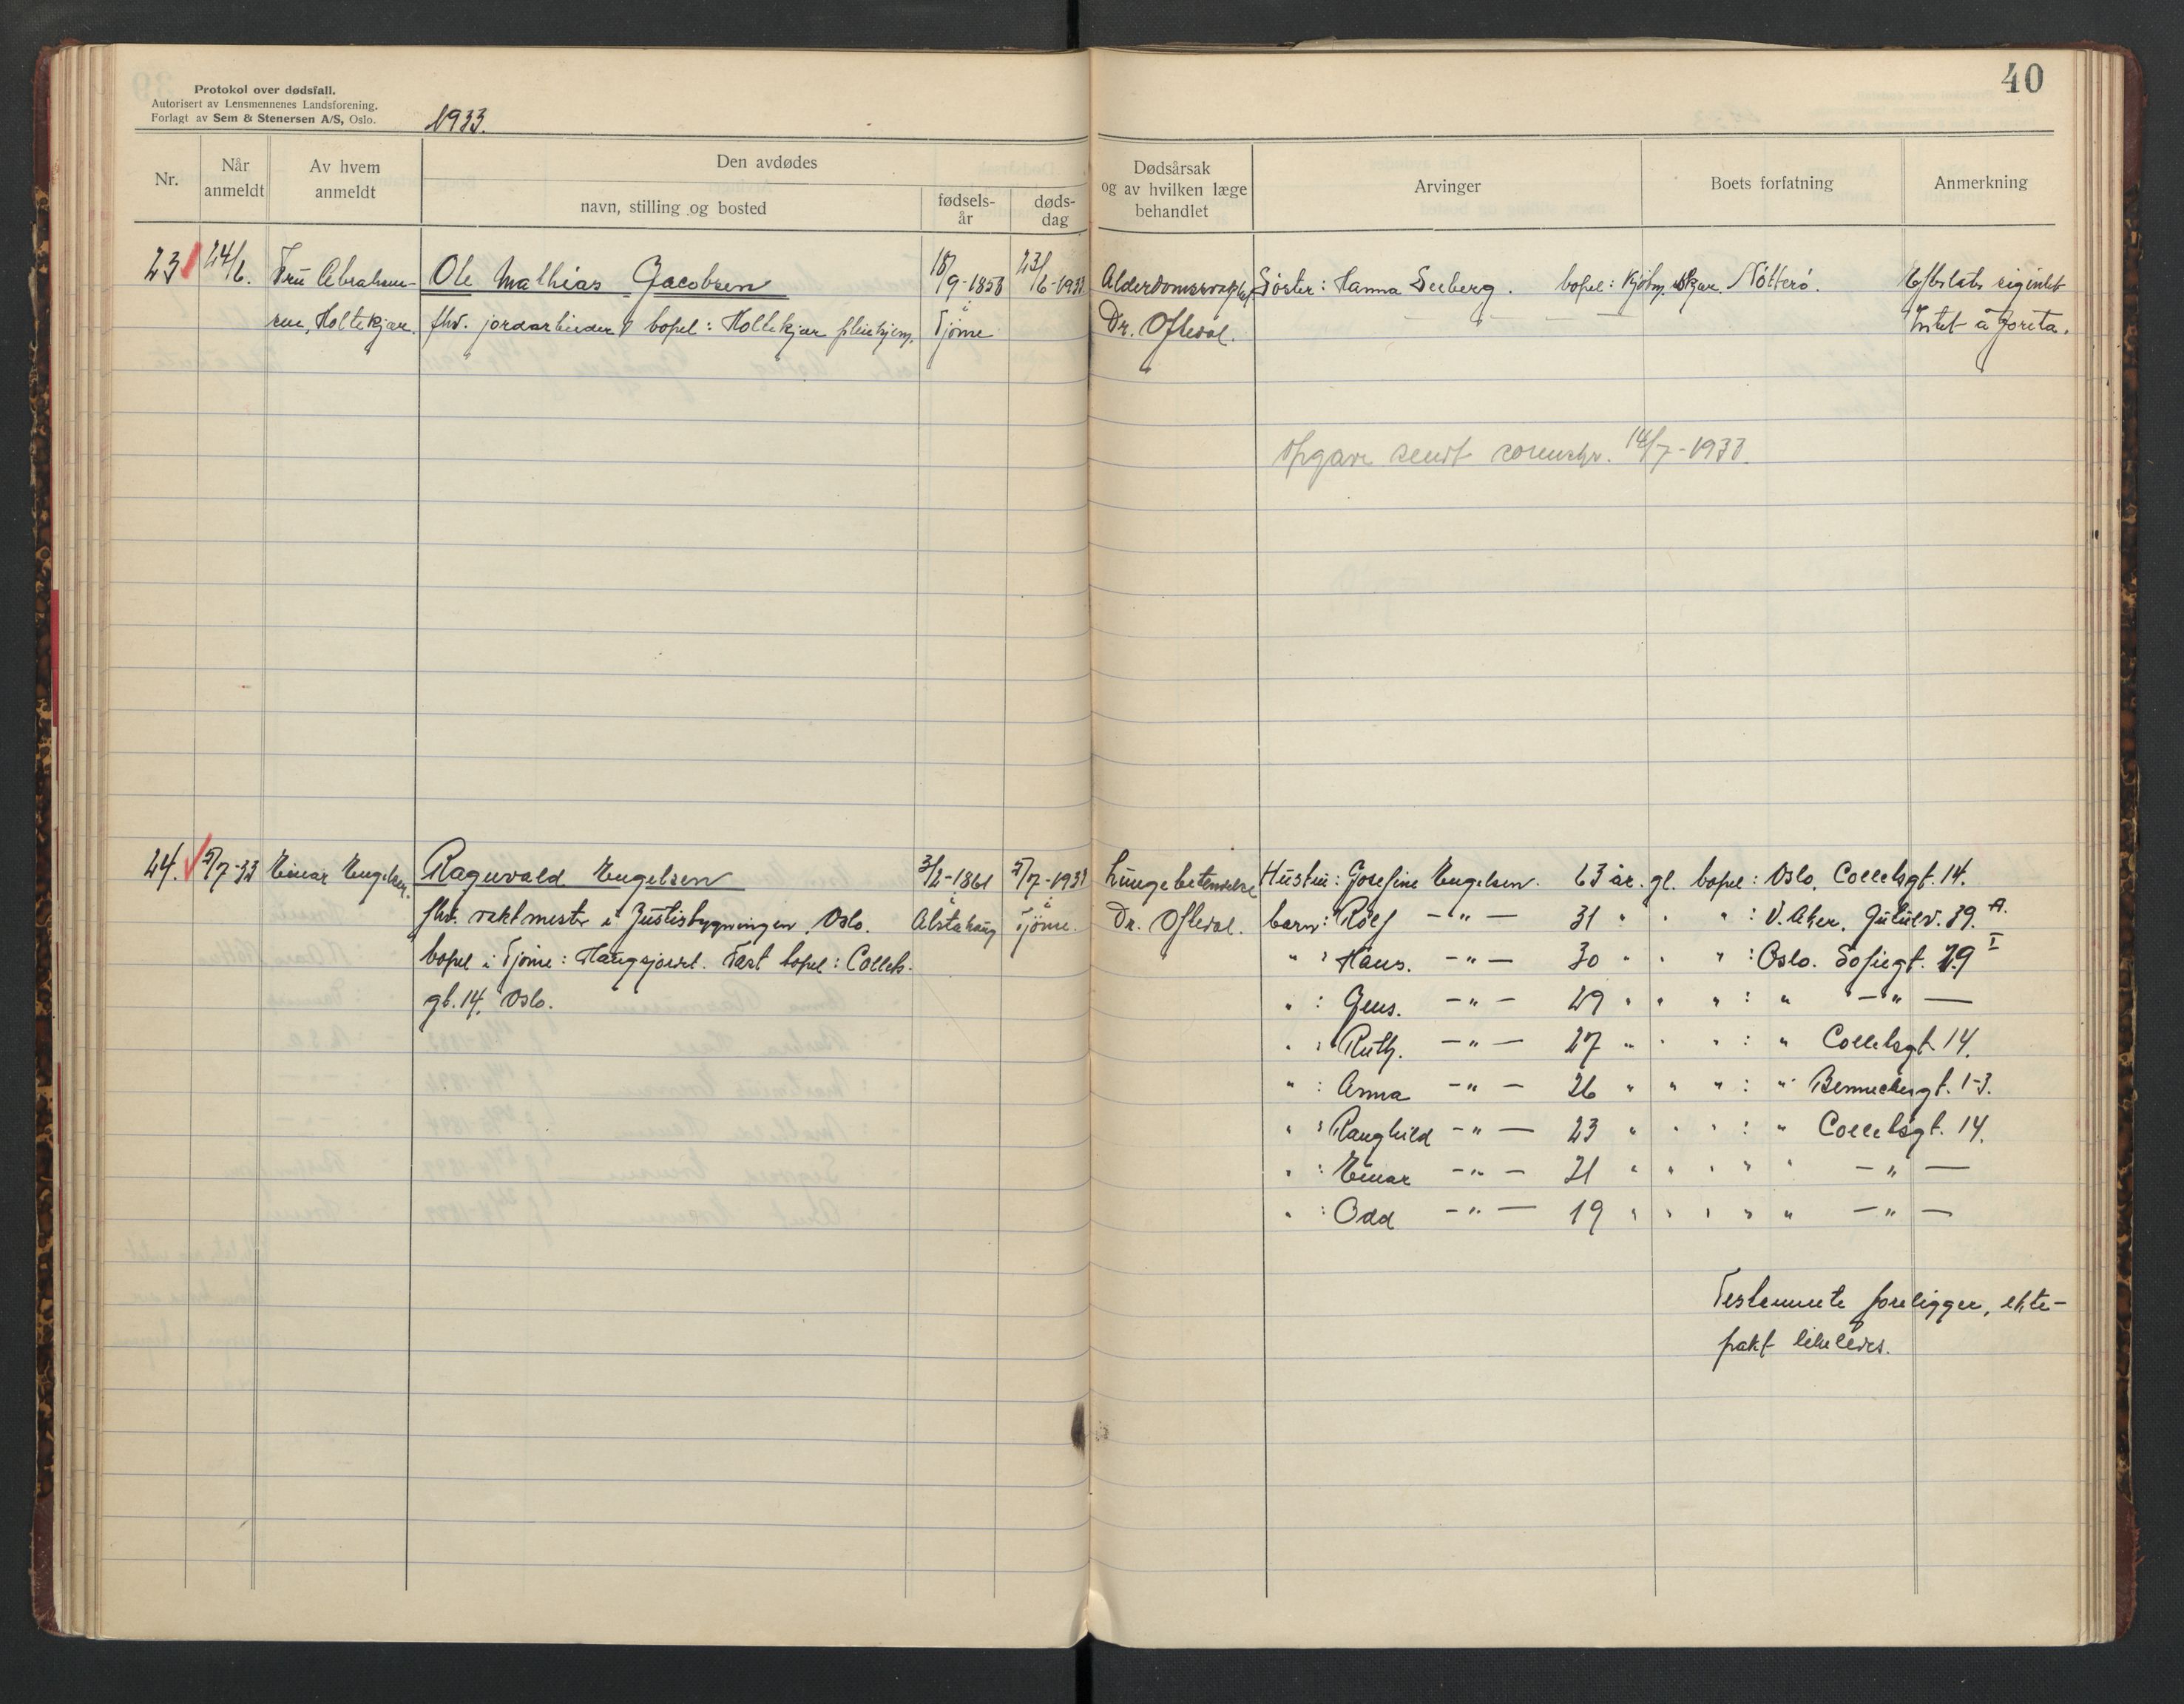 40
Protokol over dødsfall.
Autorisert av Lensmennenes Landsforening.
Forlagt av Sem & Stenersen A/S, Oslo.
1933.
Nr.
Når anmeldt
Av hvem anmeldt
Den avdødes
navn, stilling og bosted
fødsels-år
døds-dag
Dødsårsak og av hvilken læge behandlet
Arvinger
Boets forfatning
Anmerkning
23 24/6. Fru Abraham- Ole Mathias Jacobsen 18/9-1853 23/6-1933 Søster: Hanna Seeberg. bopel: Kjøbm. Skjær. Nøtterø.
sen, Holtekjær. fhv. jordarbeider bopel: Holtekjær pleiehjem. i Tjøme Dr. Oftedal. Intet å
Opgave sendt sorenskr. 14/7-1933.
24. 5/7-33 Einar Engelsen. Ragnvald Engelsen 3/2-1861 5/7-1933 Lungebetendelse Hustru: Josefine Engelsen. 63 år. gl. bopel: Oslo, Colletsgt. 14.
fhv. vaktmester i Justisbygningen, Oslo. i Alstahaug i Tjøme. Dr. Oftedal. barn: Rolf -"- 31 " " " : V. Aker, 39. A.
bopel i Tjøme: Haugsjordet. Fast bopel: Collets- " : Hans. -"- 30 " " " : Oslo. Sofiegt. 79 I
gt. 14, Oslo. " : Jens. -"- 29 " " " : " -"-
" : Ruth. -"- 27 " " " : " Colletsgt. 14.
" : Anna -"- 26 " " " : " Bennechesgt. 1-3.
" : Ranghild -"- 23 " " " : " Colletsgt. 14.
" : Einar -"- 21 " " " " " -"-
" : Odd -"- 19 " " " " " -"-
Testamente foreligger, ekte-
pakt likeledes.